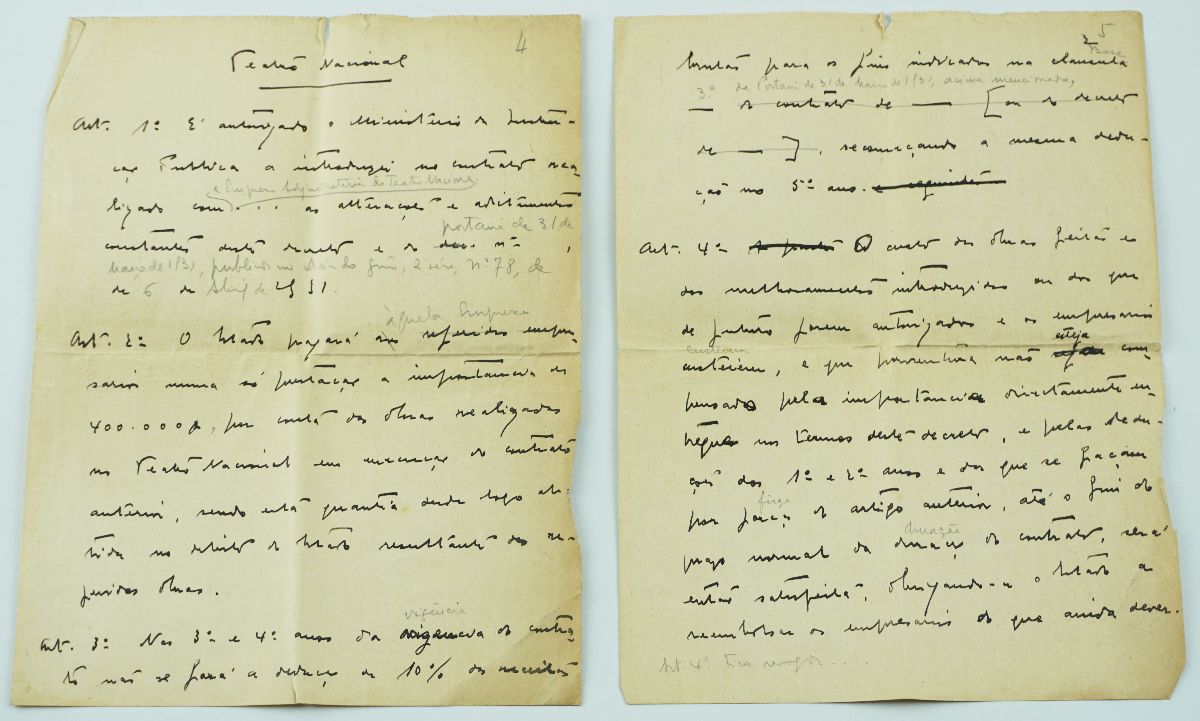 4
Teatro Nacional
Art. 1º É autorizado o Ministério da Instru-
ção Publica a introduzir no contrato rea-
a Empresa Adjudicataria do Teatro Nacional
lizado com . . . . as alterações e aditamentos
portaria de 31 de
constantes deste decreto e do dec. nº ,
Março de 1931, publicado no Diário do Gov., 2 série, nº 78, de
de 6 de Abril de 1931.
àquela Empresa
Art. 2º O Estado pagará aos referidos empre-
sarios numa só prestação a importancia de
400.000$, por conta das obras realizadas
no Teatro Nacional em execução do contrato
anterior, sendo esta quantia desde logo aba-
tida no debito do Estado resultante das re-
feridas obras.
vigência
Art. 3º Nos 3º e 4º anos da vigencia do contra-
to não se fará a dedução de 10% das receitas
5
2
Base
brutas para os fins indicados na clausula
3.ª da Portaria de 31 de Março de 1931, acima mencionada,
— do contrato de — [ou do decreto
de — ], recomeçando a mesma dedu-
ção no 5º ano. e seguintes
Art. 4º O custo das obras feitas e
dos melhoramentos introduzidos ou dos que
de futuro forem autorizados e os empresarios
custeiem
custeiem, e que porventura não
esteja
com-
pensado pela importancia directamente en-
tregue nos termos deste decreto, e pelas dedu-
ções dos 1º e 2º anos e das que se façam
força
por força do artigo anterior, até o fim do
duração
prazo normal da duração do contrato, será
então satisfeita, obrigando-se o Estado a
reembolsar os empresarios do que ainda dever.
Art 4º fica revogd . . . .